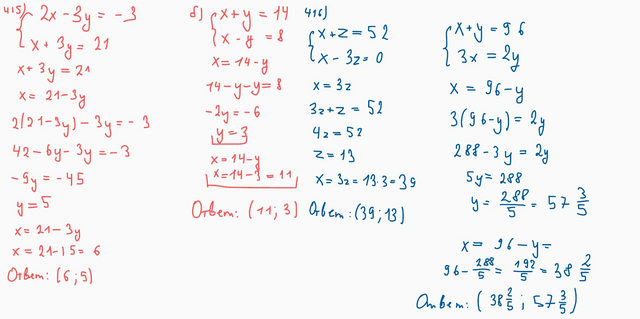 415) { 2x - 3y = -3
x + 3y = 21
x + 3y = 21
x = 21 - 3y
2(21-3y) - 3y = -3
42 - 6y - 3y = -3
-9y = -45
y = 5
x = 21 - 3y
x = 21 - 15 = 6
Ответ: (6; 5)
б) { x + y = 14
x - y = 8
x = 14 - y
14 - y - y = 8
-2y = -6
y = 3
x = 14 - y
x = 14 - 3 = 11
Ответ: (11; 3)
416)
{ x + z = 52
x - 3z = 0
x = 3z
3z + z = 52
4z = 52
z = 13
x = 3z = 13·3 = 39
Ответ: (39; 13)
{ x + y = 96
3x = 2y
x = 96 - y
3(96 - y) = 2y
288 - 3y = 2y
5y = 288
y = 288/5 = 57 3/5
x = 96 - y =
96 - 288/5 = 192/5 = 38 2/5
Ответ: (38 2/5; 57 3/5)